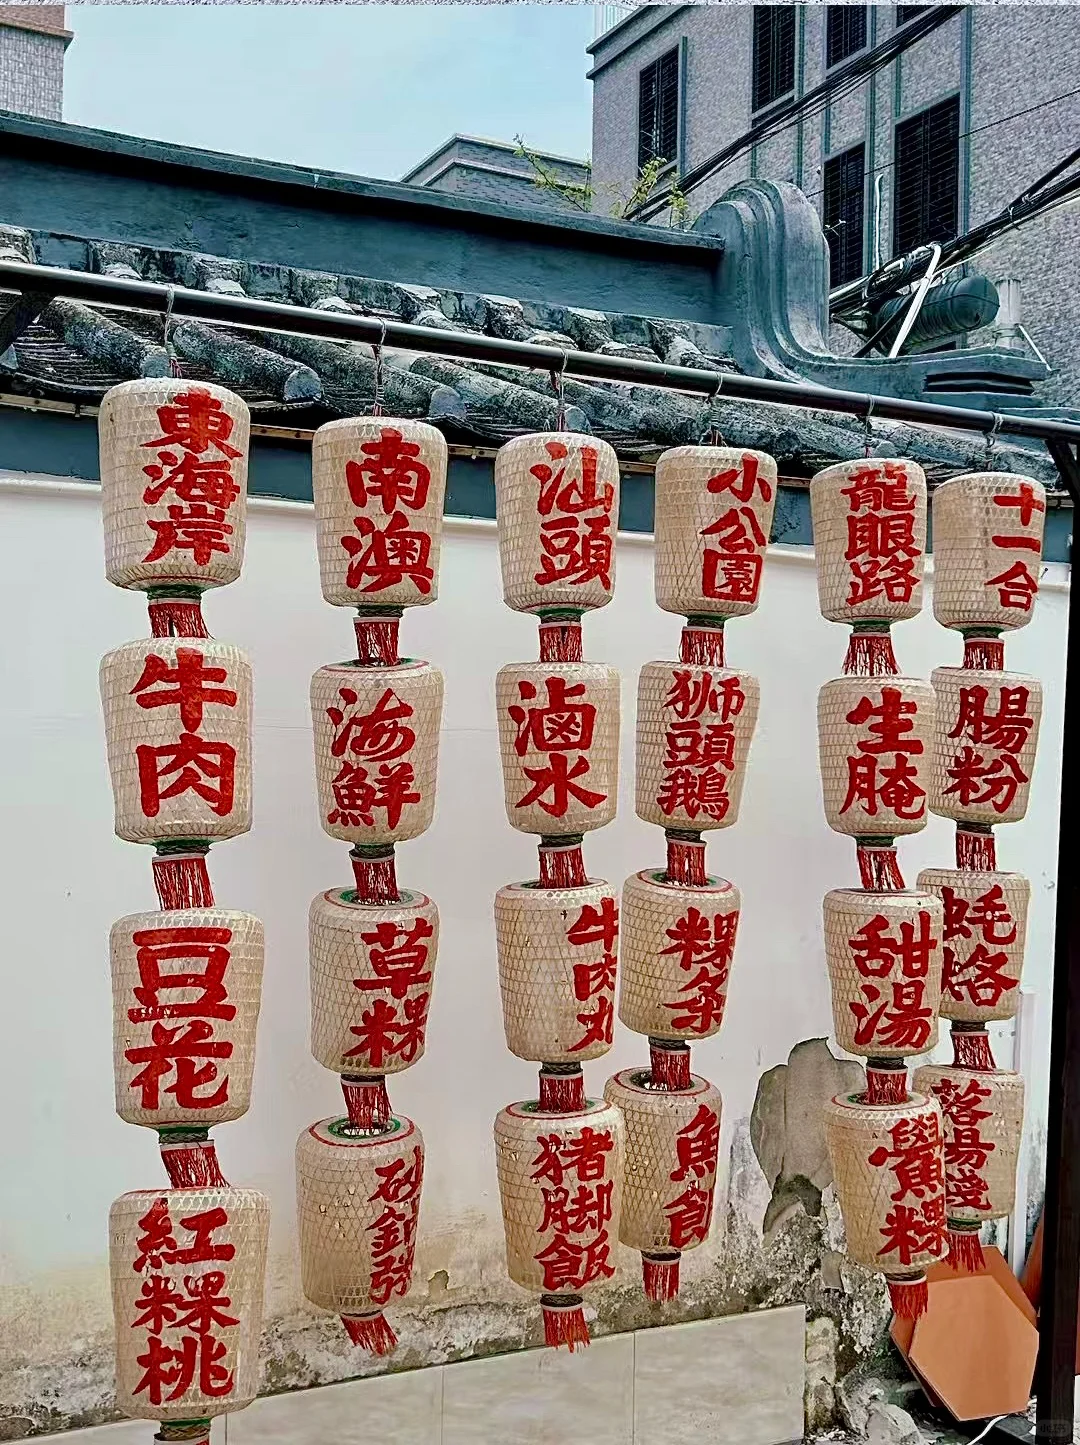 東海岸
牛肉
豆花
紅粿桃
南澳
海鮮
草粿
砂
汕頭
滷水
牛肉丸
猪脚飯
小公園
狮頭鵝
粿条
魚餃
龍眼路
生腌
甜湯
鱟粿
十一合
腸粉
蚝烙
落湯